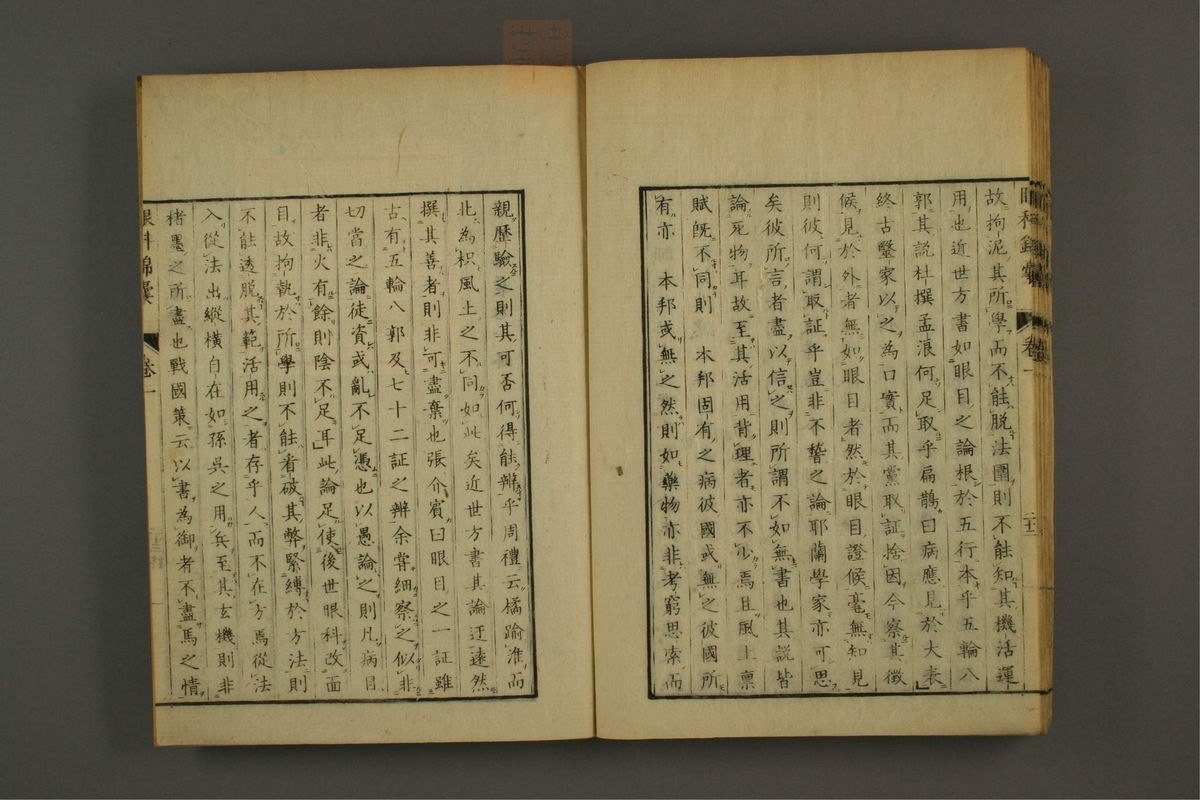 故拘泥其所學而不能脫法圈則不能知其機活運
用也近世方書如眼目之論根於五行本乎五輪八
郭其說杜撰孟浪何足取乎扁鵲曰病應見於大表
終古醫家以之為口實而其黨取証捨因今察其徵
候見於外者無如眼目者然於眼目證候毫無知見
則彼何謂取証乎豈非不聱之論耶蘭學家亦可思
矣彼所言者盡以信之則所謂不如無書也其說皆
論死物耳故至其活用背理者亦不少焉且風土稟
賦既不同則　本邦固有之病彼國或無之彼國所
有亦　本邦或無之然則如藥物亦非考窮思索而
親歷驗之則其可否何得能辨乎周禮云橘踰淮而
北為枳風土之不同如此矣近世方書其論迂遠然
撰其善者則非可盡棄也張介賓曰眼目之一証雖
古有五輪八郭及七十二証之辨余嘗細察之似非
切當之論徒資或亂不足憑也以愚論之則凡病目
者非火有餘則陰不足耳此論足使後世眼科改面
目故拘執於所學則不能看破其弊緊縛於方法則
不能透脫其範活用之者存乎人而不在方焉從法
入從法出縱橫自在如孫吳之用兵至其玄機則非
楮墨之所盡也戰國策云以書為御者不盡馬之情
眼科錦囊　卷一